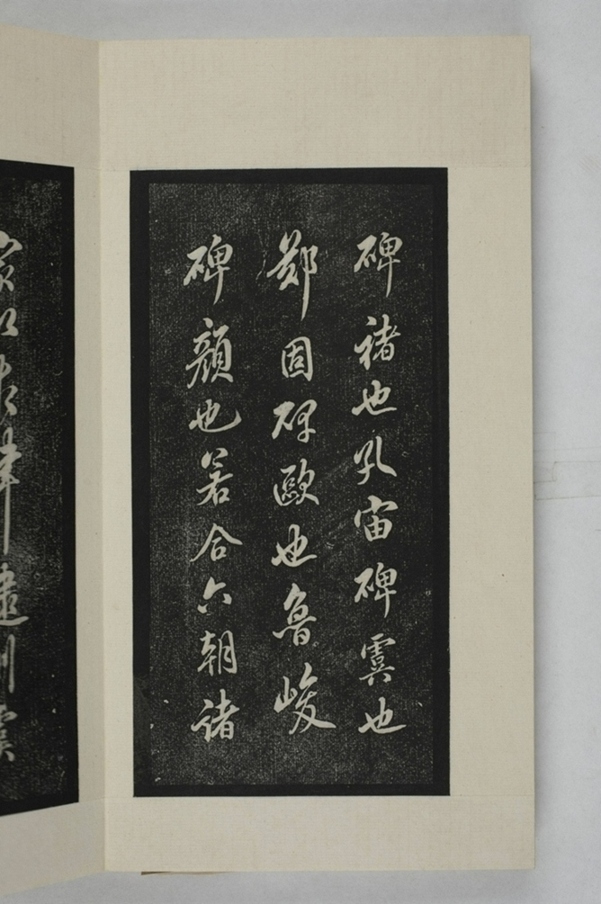 碑褚也孔宙碑虞也
鄭固碑歐也魯峻
碑顏也若合六朝諸